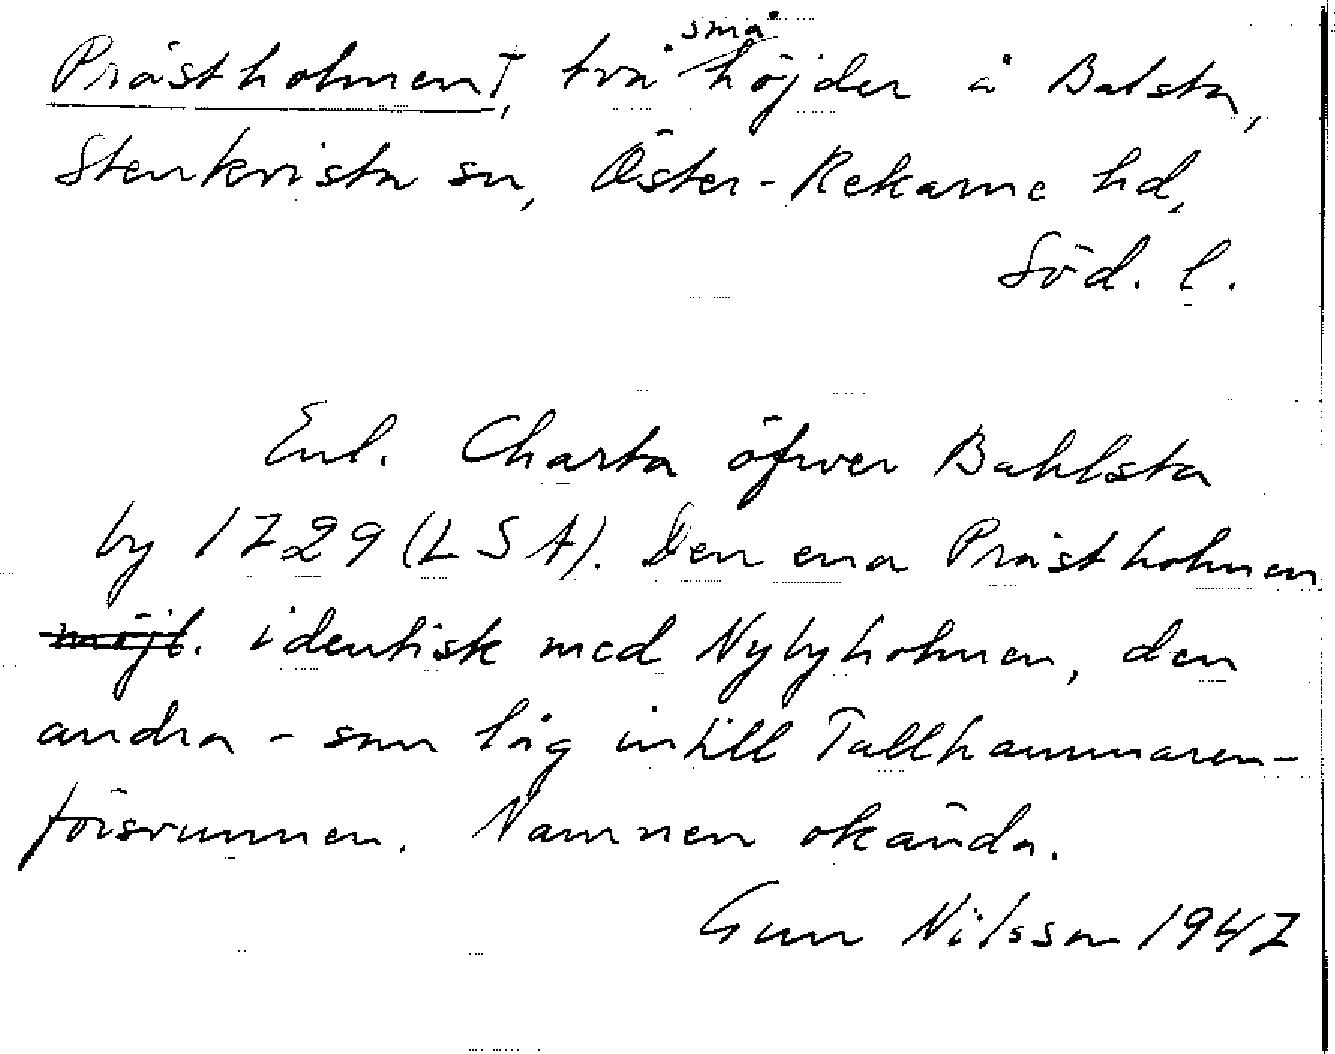 Prästholmen†, två små höjder å Balsta,
Stenkvista sn, Öster-Rekarne hd,
Söd. l.
Enl. Charta öfwer Bahlsta
by 1729 (LSA). Den ena Prästholmen
möjl. identisk med Nybyholmen, den
andra - som låg intill Tallhammaren -
försvunnen. Namnen okända.
Gun Nilsson 1947